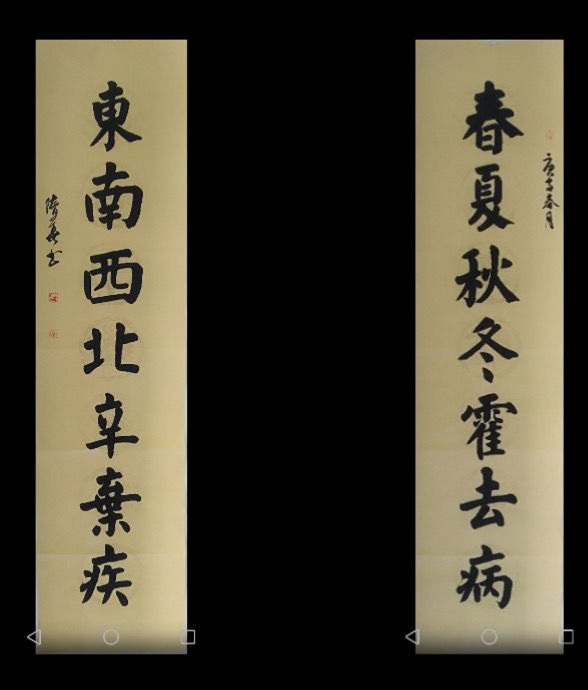 庚子春月
春夏秋冬霍去病
東南西北辛棄疾